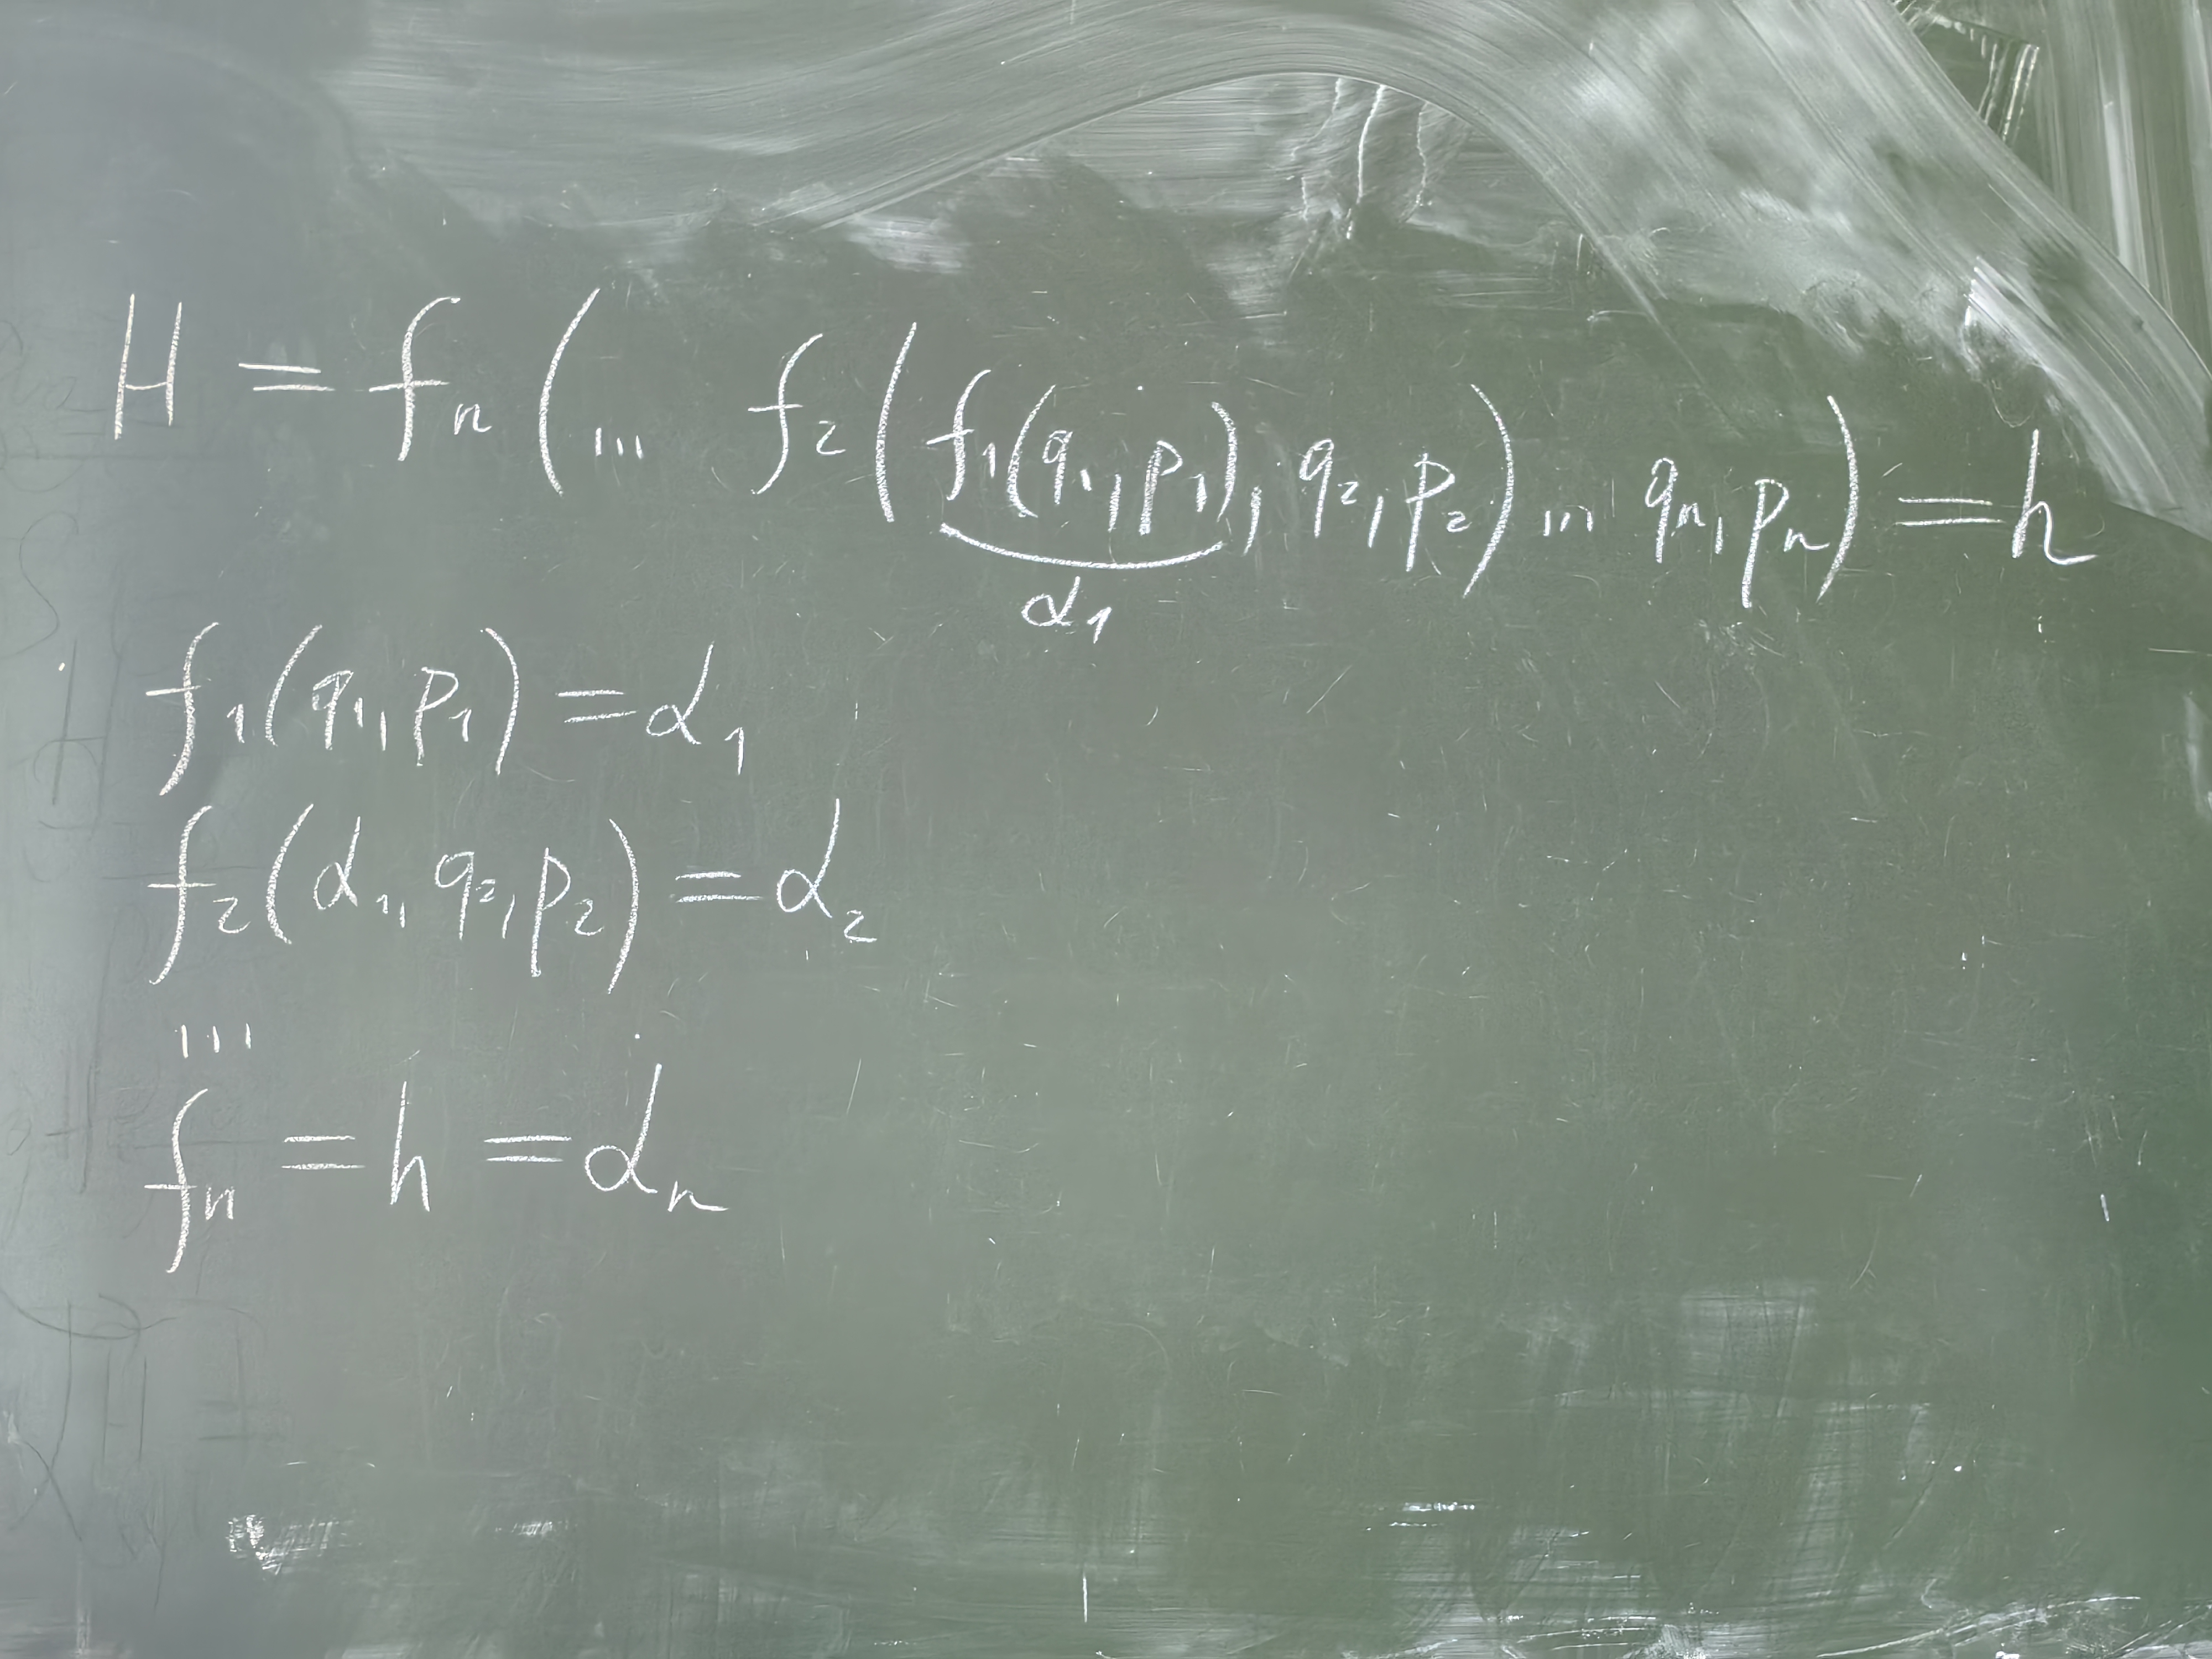 H = fₙ (... f₂(f₁(q₁,p₁), q₂,p₂) ... qₙ,pₙ) = h
α₁
f₁(q₁,p₁) = α₁
f₂(α₁, q₂,p₂) = α₂
...
fₙ = h = αₙ